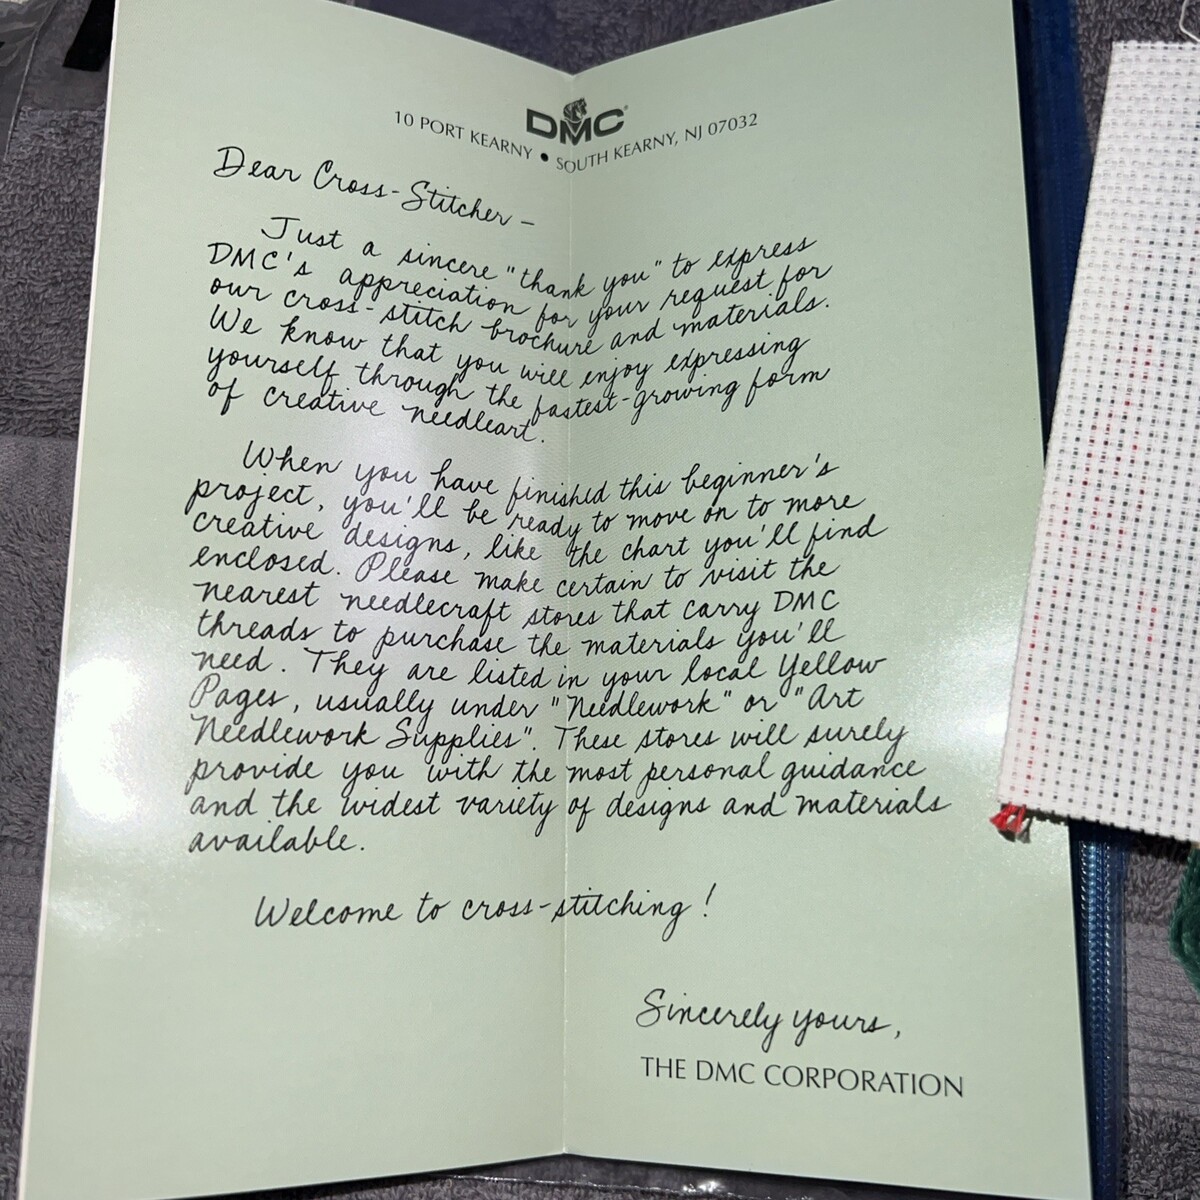 DMC®
10 PORT KEARNY • SOUTH KEARNY, NJ 07032
Dear Cross-Stitcher –
Just a sincere "thank you" to express
DMC's appreciation for your request for
our cross-stitch brochure and materials.
We know that you will enjoy expressing
yourself through the fastest-growing form
of creative needleart.
When you have finished this beginner's
project, you'll be ready to move on to more
creative designs, like the chart you'll find
enclosed. Please make certain to visit the
nearest needlecraft stores that carry DMC
threads to purchase the materials you'll
need. They are listed in your local Yellow
Pages, usually under "Needlework" or "Art
Needlework Supplies". These stores will surely
provide you with the most personal guidance
and the widest variety of designs and materials
available.
Welcome to cross-stitching!
Sincerely yours,
THE DMC CORPORATION